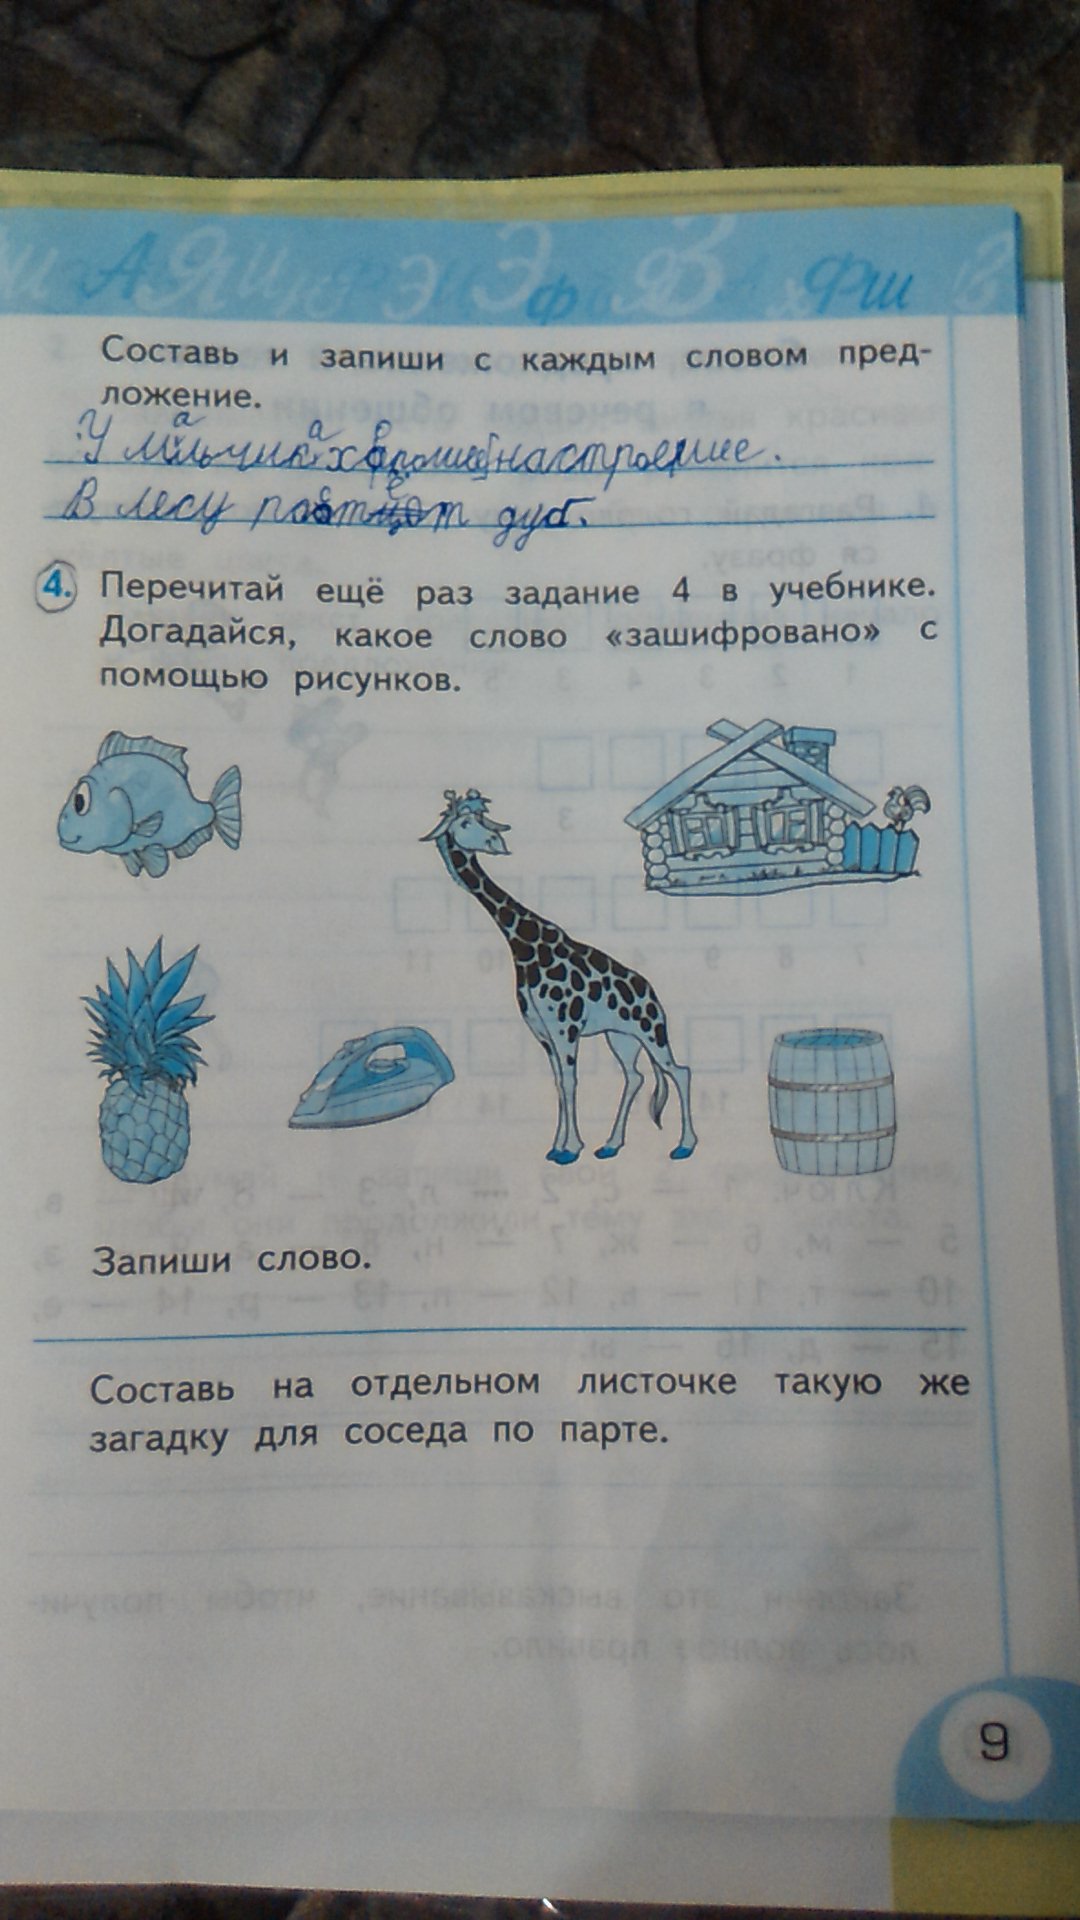 Составь и запиши с каждым словом пред-
ложение.
У мальчика хорошее настроение.
В лесу растёт дуб.
4. Перечитай ещё раз задание 4 в учебнике.
Догадайся, какое слово «зашифровано» с
помощью рисунков.
Запиши слово.
Составь на отдельном листочке такую же
загадку для соседа по парте.
9